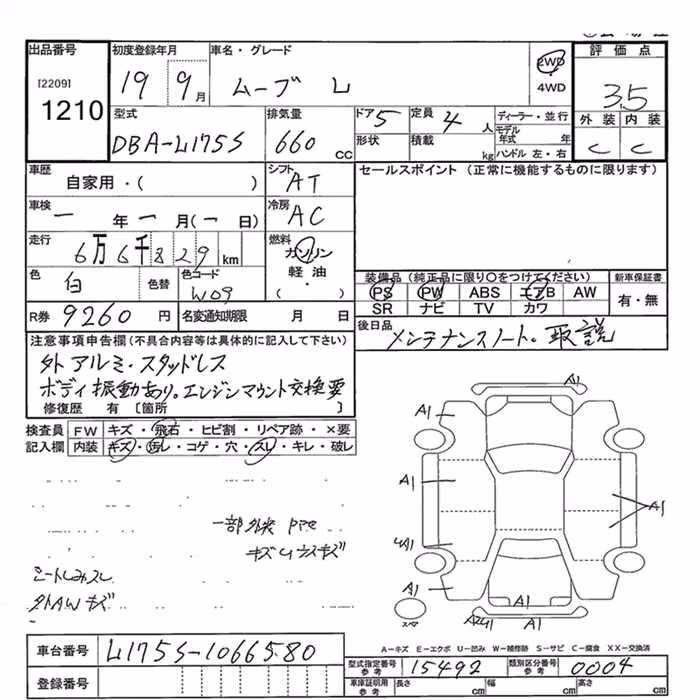 出品番号 初度登録年月 車名・グレード 2WD 評価点
[2209] 19 9月 ムーブ L 4WD 3.5
1210 型式 排気量 ドア 5 定員 4人 ディーラー・並行 外装 内装
DBA-L175S 660 CC 形状 積載 kg モデル年式 年 ハンドル 左・右 C C
車歴 シフト セールスポイント(正常に機能するものに限ります)
自家用・( ) AT
車検 冷房
一 年 一 月(一 日) AC
走行 燃料
6万6千829km ガソリン
色 色替 色コード 軽油 装備品(純正品に限り○をつけてください) 新車保証書
白 W09 ・( ) PS PW ABS エアB AW 有・無
SR ナビ TV カワ
R券 9260円 名変通知期限 月 日 後日品
メンテナンスノート。取説
注意事項申告欄(不具合内容等は具体的に記入して下さい)
外 アルミ・スタッドレス
ボディ振動あり。エンジンマウント交換要
修復歴 有 [箇所 ]
検査員 FW キズ・飛石・ヒビ割・リペア跡・×要
記入欄 内装 キズ・汚レ・コゲ・穴・スレ・キレ・破レ
A1
A1
A1
A1
A1
A1
A1
一部外装
シートしみスレ
外AWキズ
スペア
A-キズ E-エクボ U-凹み W-補修跡 S-サビ C-腐食 XX-交換済
車台番号 L175S-1066580
登録番号
型式指定番号 参考 15492 類別区分番号 参考 0004
車庫証明用 参考 長さ cm 幅 cm 高さ cm